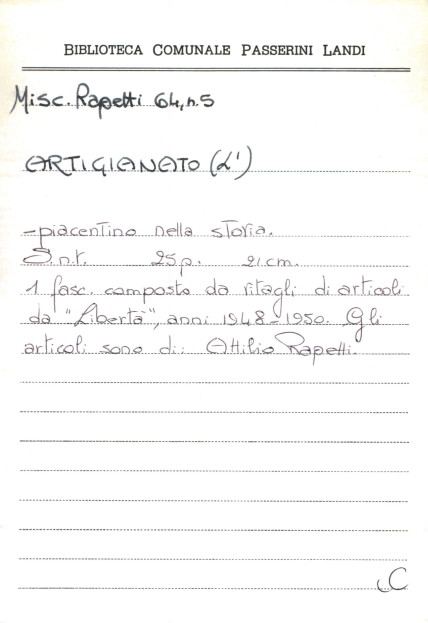 BIBLIOTECA COMUNALE PASSERINI LANDI
Misc. Rapetti 64, n. 5
ARTIGIANATO (L')
- piacentino nella storia.
S.n.t. 25 p. 21 cm.
1 fasc. composto da ritagli di articoli
da "Libertà", anni 1948-1950. Gli
articoli sono di: Attilio Rapetti.
C